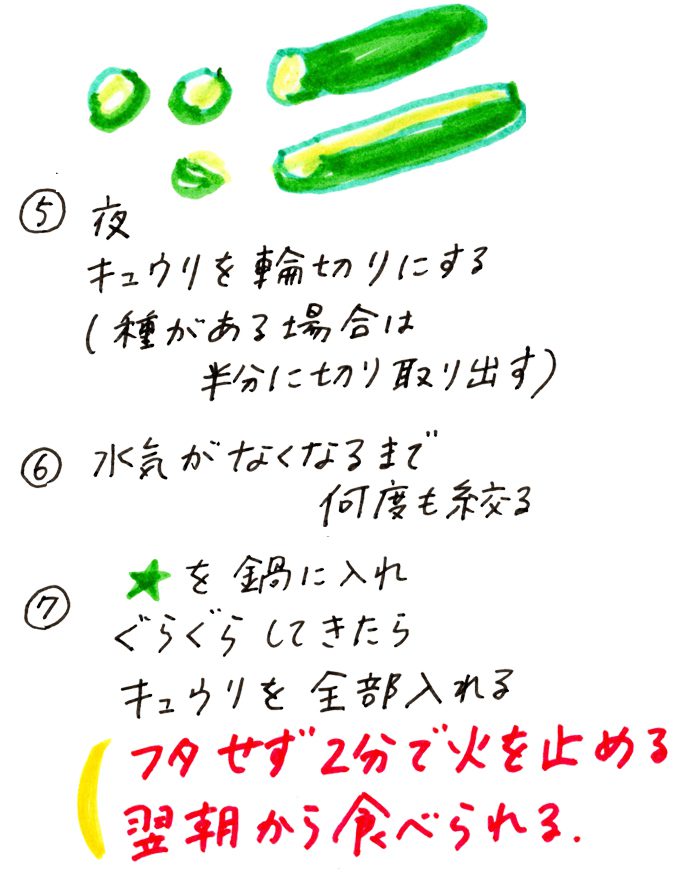 ⑤ 夜
キュウリを輪切りにする
(種がある場合は
半分に切り取り出す)
⑥ 水気がなくなるまで
何度も絞る
⑦ ★を鍋に入れ
ぐらぐらしてきたら
キュウリを全部入れる
フタせず2分で火を止める
翌朝から食べられる.